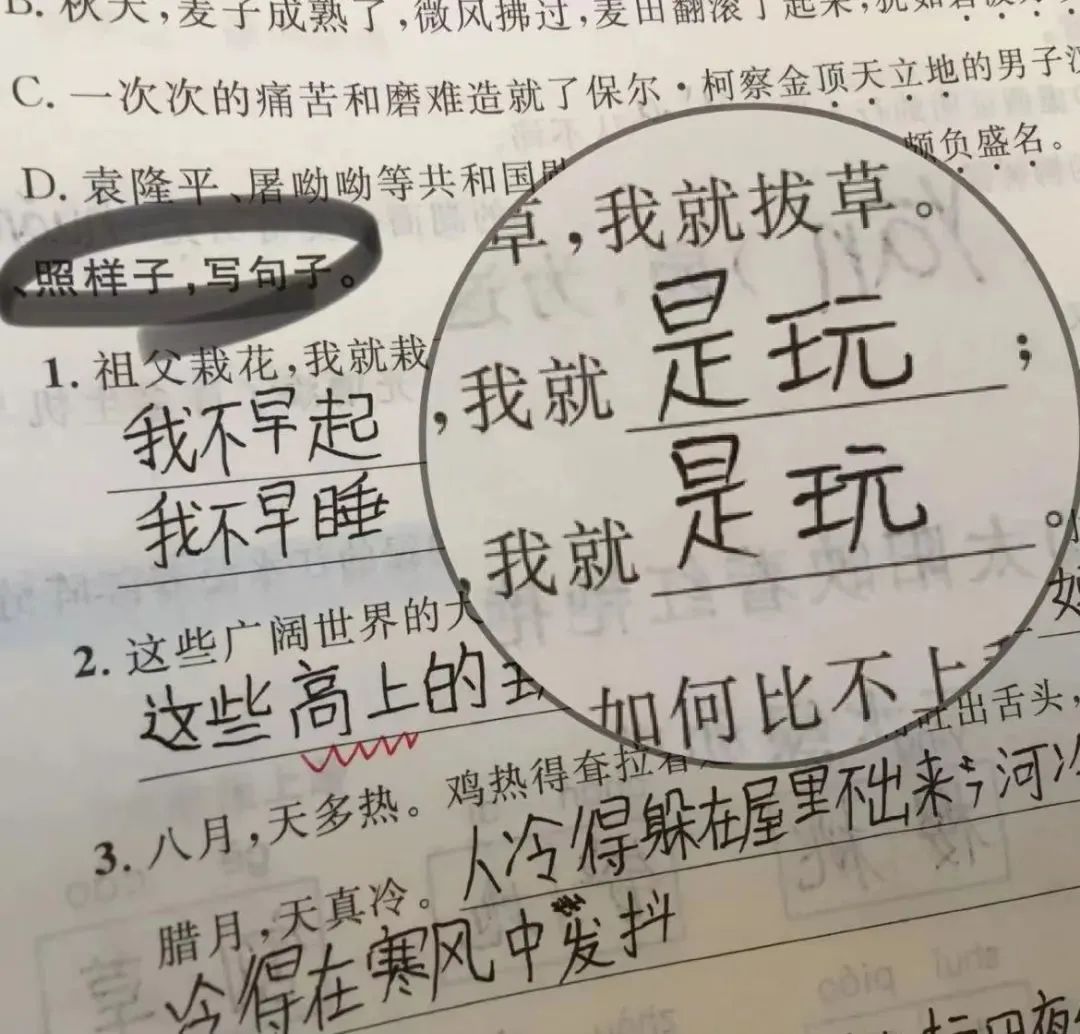 B. 秋天,麦子成熟了,微风拂过,麦田翻滚了起来,犹如
C. 一次次的痛苦和磨难造就了保尔·柯察金顶天立地的男子
D. 袁隆平、屠呦呦等共和国 颇负盛名。
、照样子,写句子。
1. 祖父栽花,我就栽 草,我就拔草。
我不早起 ,我就是玩;
我不早睡 ,我就是玩。
2. 这些广阔世界的大 如何比不上
这些高上的
3. 八月,天多热。鸡热得耷拉着 吐出舌头,
腊月,天真冷。人冷得躲在屋里不出来,河冷
冷得在寒风中发抖